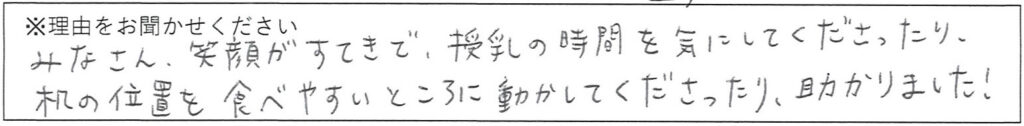 ※理由をお聞かせください
みなさん、笑顔がすてきで、授乳の時間を気にしてくださったり、
机の位置を食べやすいところに動かしてくださったり、助かりました!